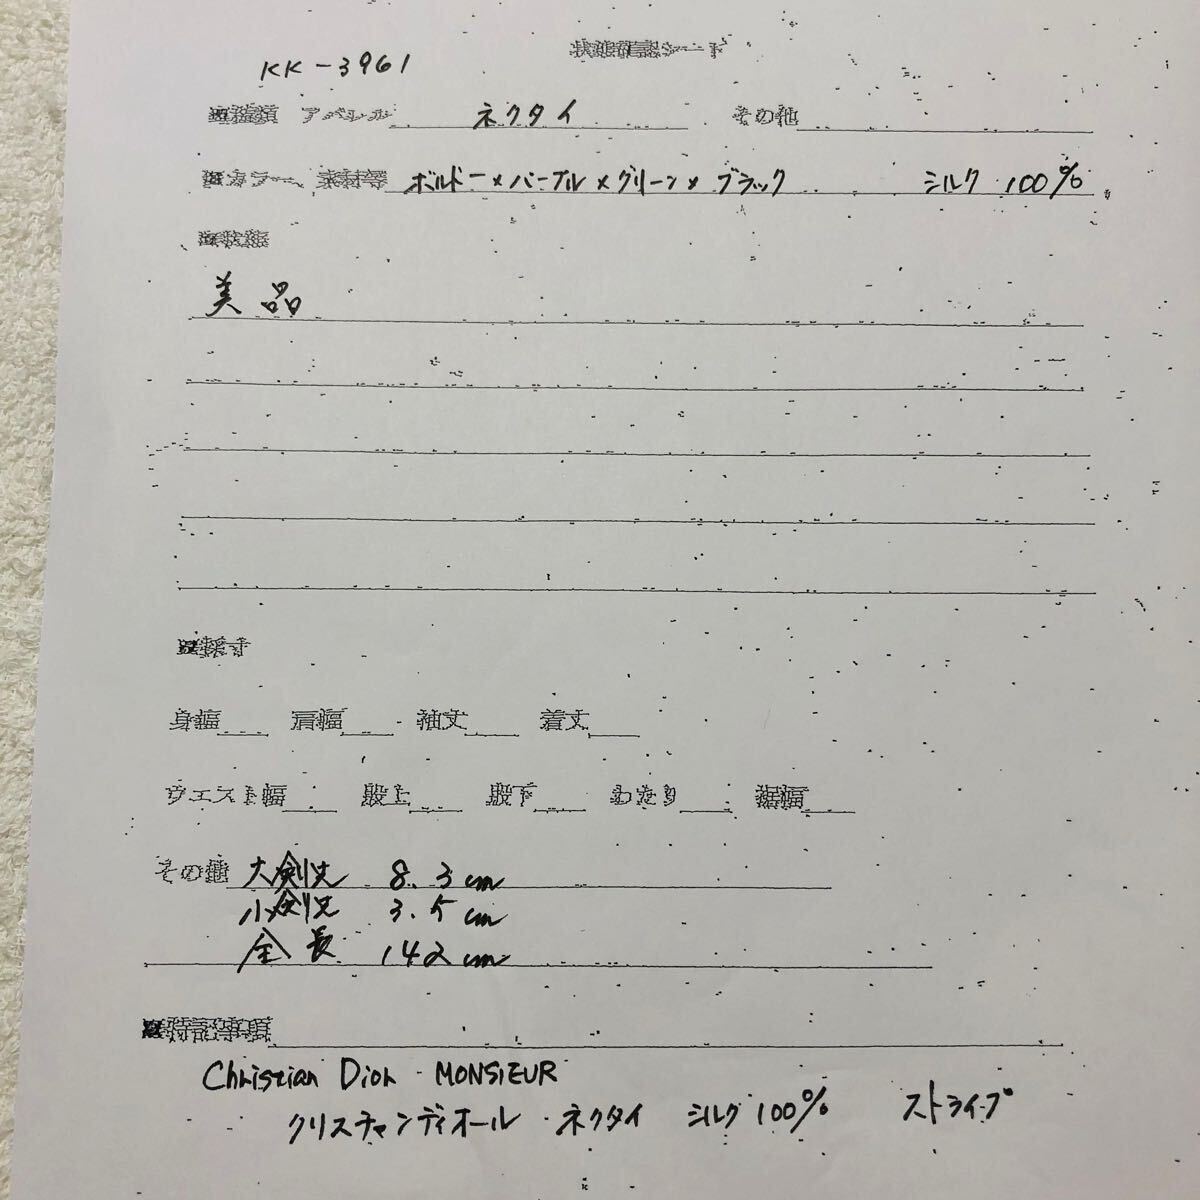 状態確認シート
KK-3961
■種類 アパレル ネクタイ その他
■カラー、素材等 ボルドー×パープル×グリーン×ブラック シルク 100%
■状態
美品
■採寸
身幅 肩幅 袖丈 着丈
ウエスト幅 股上 股下 わたり 裾幅
その他 大剣丈 8.3cm
小剣丈 3.5cm
全長 142cm
■特記事項
Christian Dior MONSIEUR
クリスチャンディオール ネクタイ シルク100% ストライプ